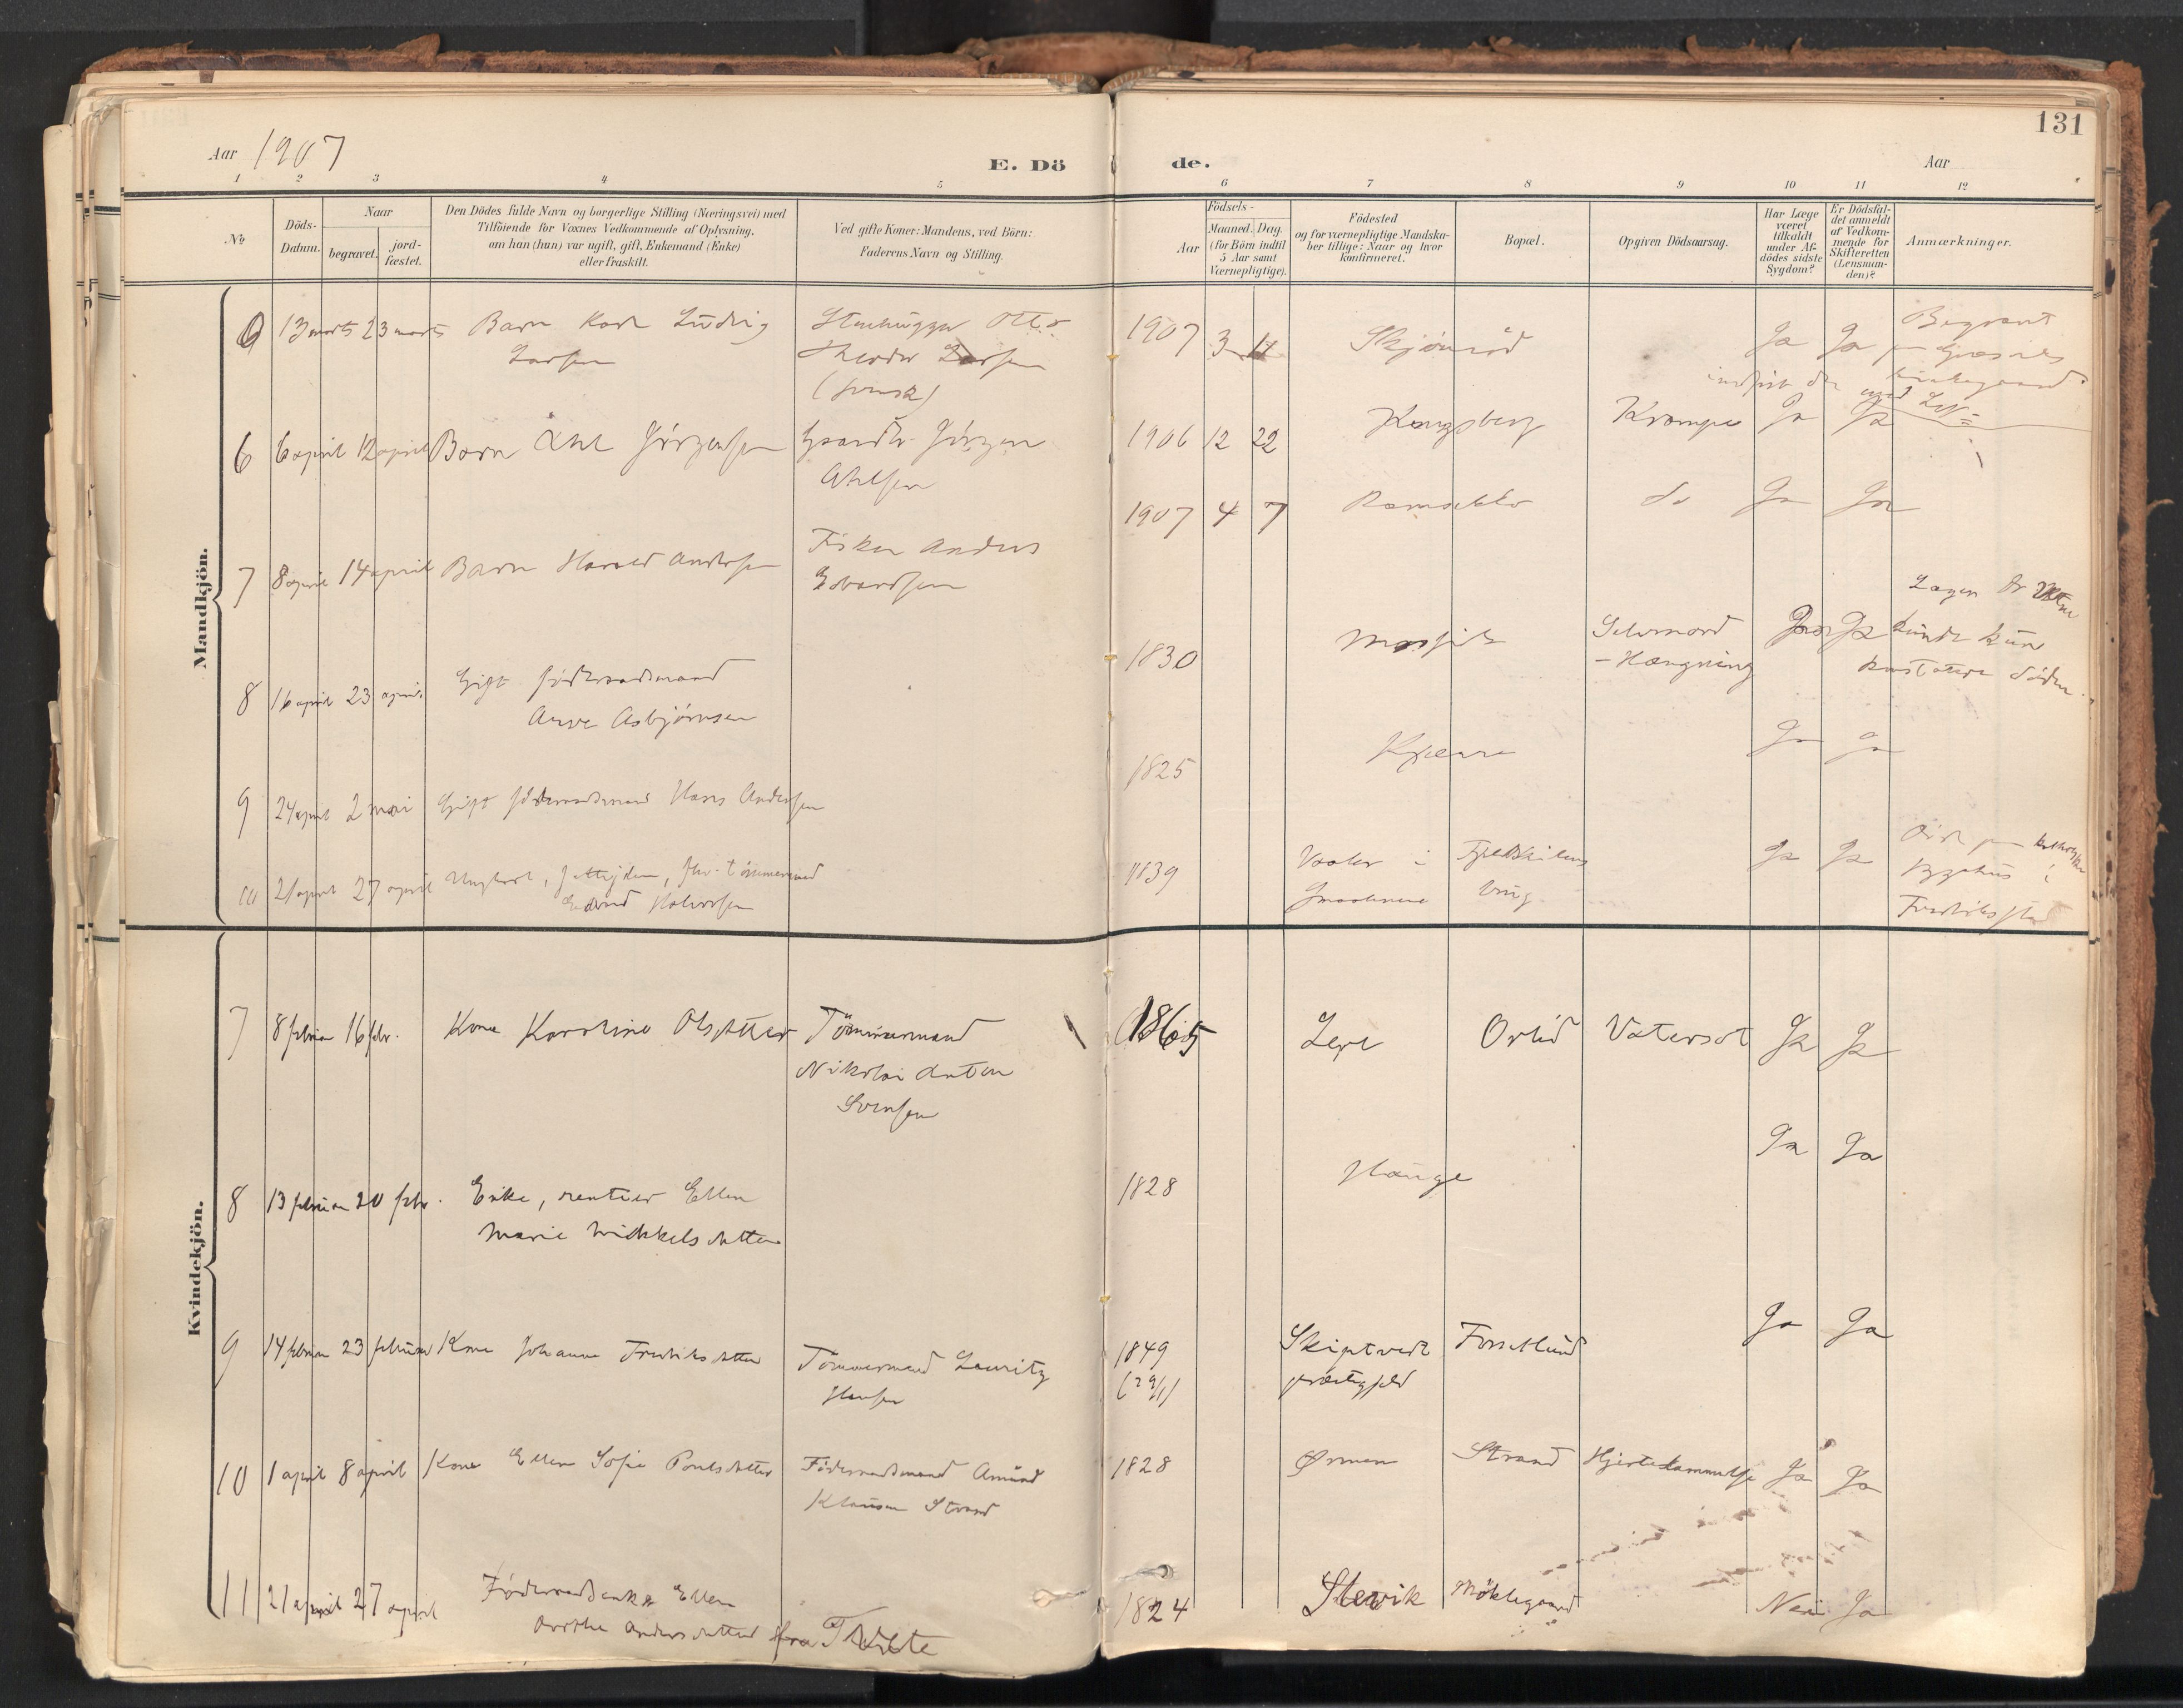 131
Aar 1907
E. Dö de.
Aar
1 2 3 4 5 6 7 8 9 10 11 12
No
Döds-Datum.
Naar
begravet.
jord-fæstet.
Den Dödes fulde Navn og borgerlige Stilling (Næringsvei) med
Tilföiende for Voxnes Vedkommende af Oplysning,
om han (hun) var ugift, gift, Enkemand (Enke)
eller fraskilt.
Ved gifte Koner: Mandens, ved Börn:
Faderens Navn og Stilling.
Födsels-
Aar
Maaned. Dag.
(for Börn indtil
5 Aar samt
Værnepligtige).
Födested
og for værnepligtige Mandska-
ber tillige: Naar og hvor
konfirmeret.
Bopæl.
Opgiven Dödsaarsag.
Har Læge
været
tilkaldt
under Af-
dödes sidste
Sygdom?
Er Dödsfal-
det anmeldt
af Vedkom-
mende for
Skifteretten
(Lensman-
den)?
Anmærkninger.
Mandkjön.
13 marts 23 marts Barn Karl Ludvig
Larsen
Stenhugger Otto
Theodor Larsen
(svensk)
1907 3 11 Skjönnöd Ja Ja
6 6 april 12 april Barn Axel Jörgensen
Jörgen
Axelsen
1906 12 22 Kongsberg Krampe Ja Ja
7 8 april 14 april Barn Harald Andersen
Fisker Anders
Edvardsen
1907 4 7 Ramsøklo do Ja Ja
8 16 april 23 april Gift föderaadsmand
Arve Asbjörnsen
1830 Selvmord
- Hængning
Lægen Dr
kunde kun
konstatere döden.
9 24 april 2 mai Gift föderaadsmand Hans Andersen
1825 Kjærre Ja Ja
10 21 april 27 april Ungkarl, fhv. tömmermand
Halvorsen
1839 Vaaler i
Smaalenene
Ja Ja
Död paa
sygehus i
Fredriksstad
Kvindekjön.
7 8 februar 16 febr. Kone Karoline Olsdatter
Tömmermand
Nikolai Anton
Svensen
1865 Lere Orlid Vatersot Ja Ja
8 13 februar 20 febr. Enke, rentier Ellen
Marie Mikkelsdatter
1828 Hauge Ja Ja
9 14 februar 23 februar Kone Johanne Fredriksdatter
Tömmermand Lauritz
Hansen
1849
(29/1)
Skiptvedt
præstegjeld
Forsetlund Ja Ja
10 1 april 8 april Kone Ellen Sofie Poulsdatter
Föderaadsmand Amund
Klausen Strand
1828 Ørmen Strand Hjertelammelse Ja Ja
11 21 april 27 april Föderaadsenke Ellen
Dorthe Andersdatter fra
1824 Slevik Möklegaard Nei Ja